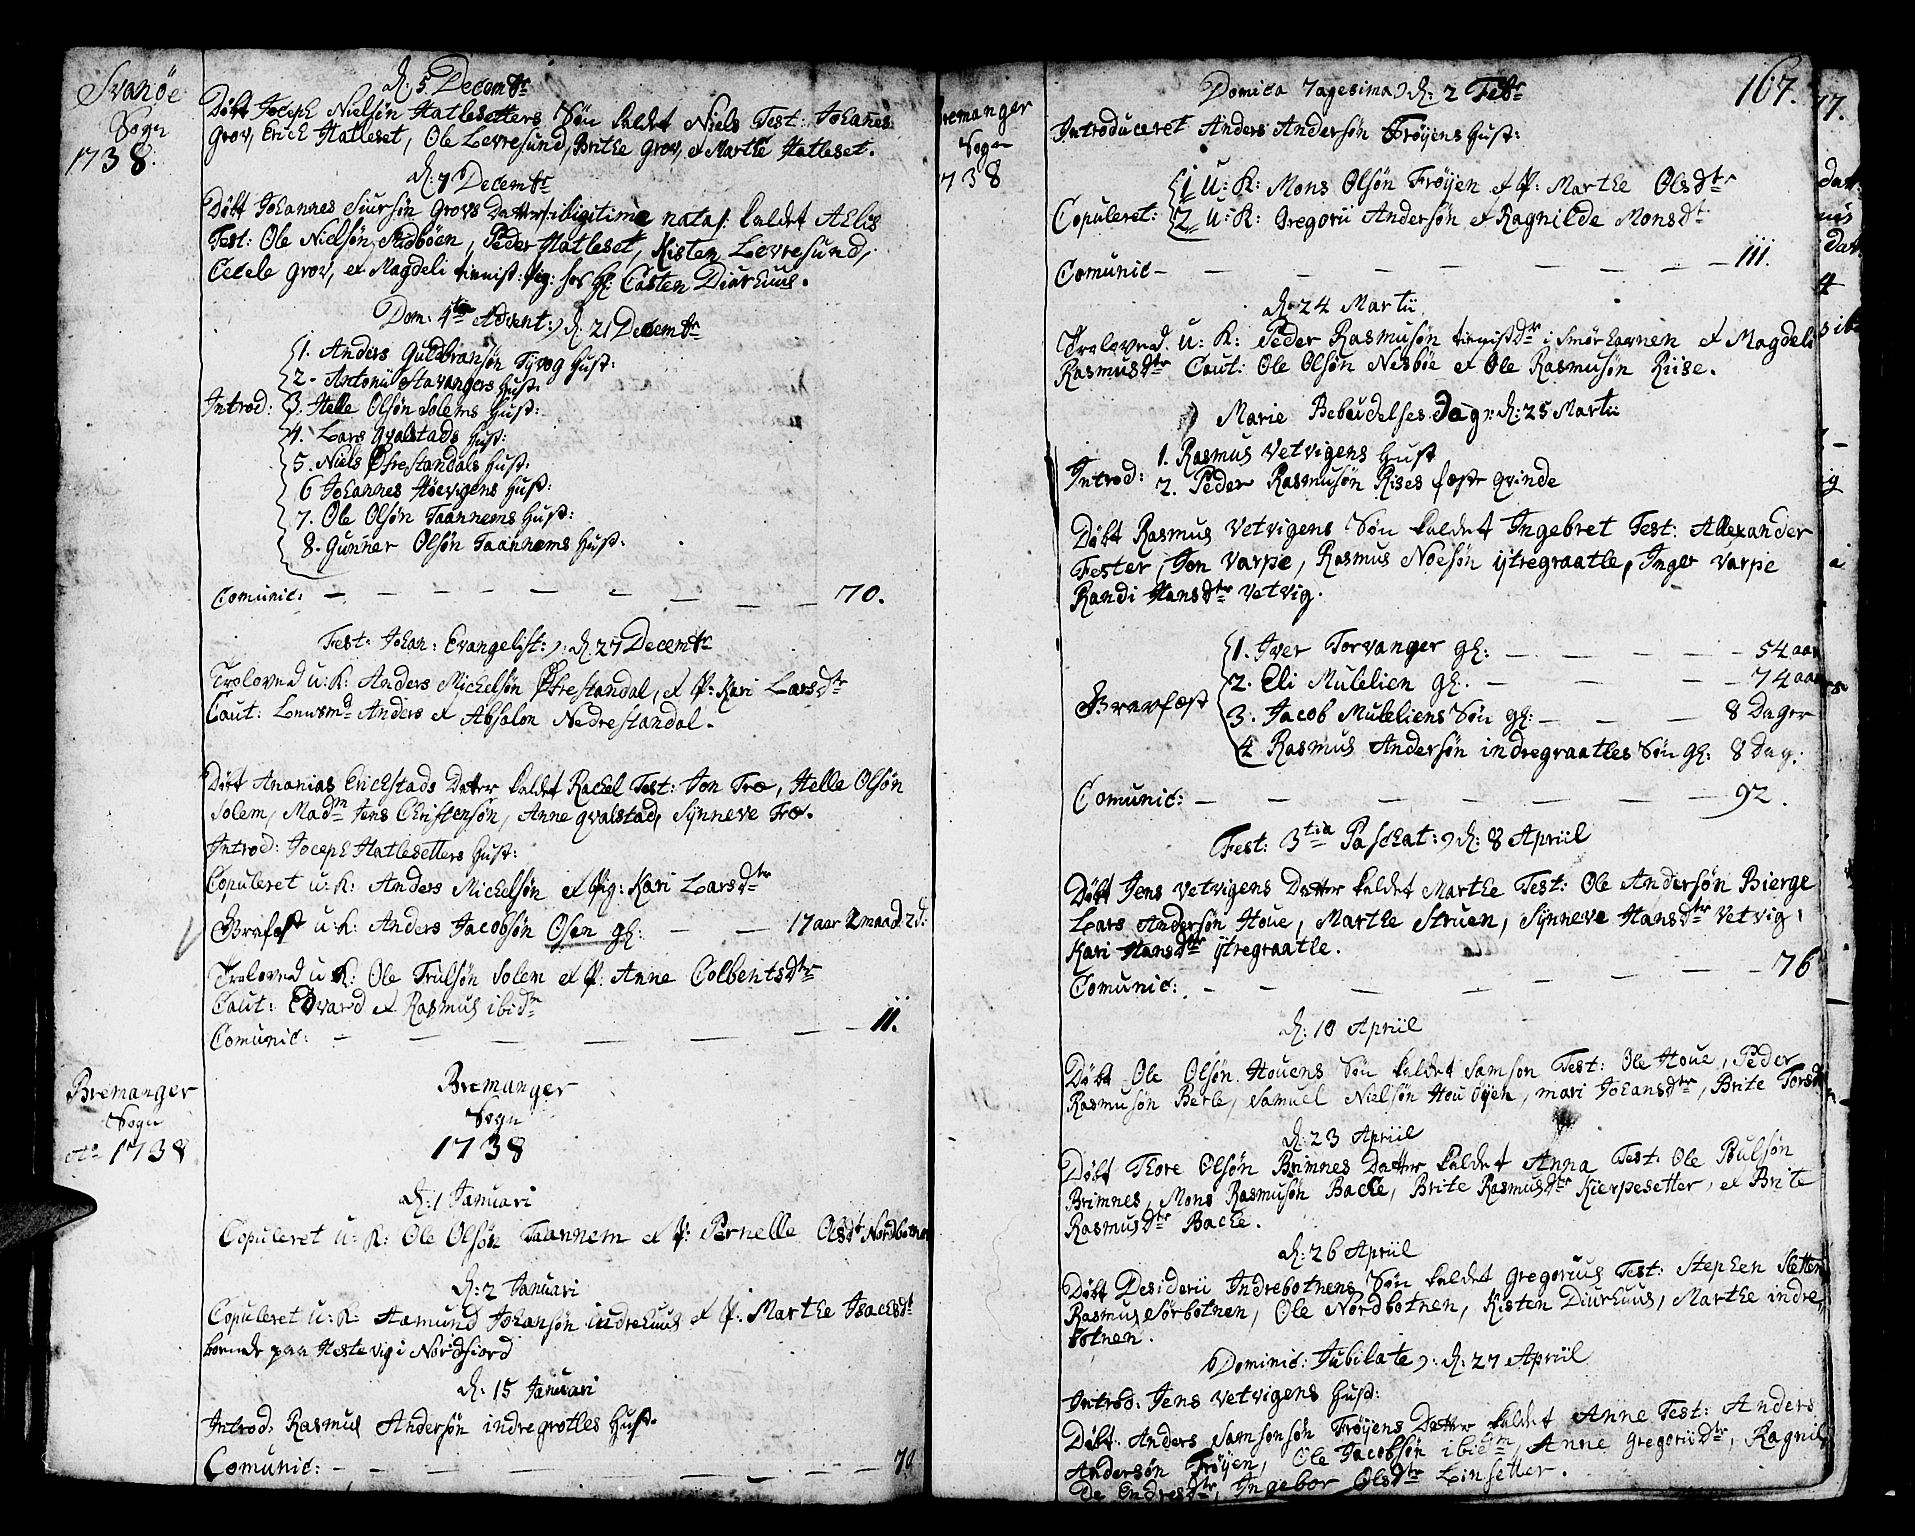 Svanöe
Sogn
1738.
d. 5. Decembr
Döbt Joceph Nielsön Hatlesetters Sön kaldet Niels Test: Johanes
Grov, Erich Hatleset, Ole Levresund, Brithe Grov, et Marthe Hatleset.
d. 7 Decembr
Döbt Johannes Siursön Grovs Datter illigitime nata kaldet Aelis
Test: Ole Nielsön Midböen, Peder Hatleset, Kisten Levresund,
Cicele Grov, et Magdeli pig: hos Hr: Casten Diurhuus.
Dom: 4te Advent: d: 21 Decembr
1. Anders Guldbransön Tyvog Hust:
2. Antonii Stavangers Hust:
Introd: 3. Helle Olsön Solems Hust:
4. Lars Qvalstads Hust:
5. Niels Öfrestandals Hust:
6 Johannes Höevigens Hust:
7. Ole Olsön Taannems Hust:
8. Gunner Olsön Taannems Hust:
Comunic: — — — — — — — 70.
Fest: Johan: Evangelist: d: 27 Decembr
Troloved u: K: Anders Michelsön Öfrestandal, et P: Kari Larsdtr
Caut: Lensmd Anders et Absalon Nedrestandal.
Döbt Ananias Endestads Datter kaldet Rachel Test: Jon Træ, Helle Olsön
Solem, Madm Jens Christensön, Anne Qvalstad, Synneve Træ.
Introd: Joceph Hatlesetters Hust:
Copuleret u: K: Anders Michelsön et Pig: Kari Larsdtr
Gravfest u: K: Anders Jacobsön Osen gl: — — 17 aar 2 maand 2 d:
Troloved u: K: Ole Trulsön Solen et P. Anne Colbentsdtr
Caut: Edvard et Rasmus ibidm
Comunic: — — — — — — — 11.
Bremanger
Sogn
Ao 1738
Bremanger
Sogn
1738
d: 1 Januari
Copuleret u: K: Ole Olsön Taannem et P: Pernelle Olsdt Nordbotnen
d: 2 Januari
Copuleret u: K: Aamund Johansön indrehuus et P: Marthe Isachsdt
boende paa Hestevig i Nordfiord
d: 15 Januari
Introd. Rasmus Andersön indregrotles Hust.
Comunic: — — — — — — — 70
Bremanger
Sogn
1738
167.
Domica 7agesima d: 2 Febr
Introduceret Anders Andersön Fröyens Hust:
1 u: K: Mons Olsön Fröyen et P: Marthe Olsdtr
Copuleret: 2 u: K: Gregorii Andersön et Ragnilde Monsdt
Comunic — — — — — — — 111.
d: 24 Martii
Troloved u: K: Peder Rasmusön i Smörhavnen et Magdeli
Rasmusdtr Caut: Ole Olsön Nesböe et Ole Rasmusön Riise.
Marie Bebudelses Dag d: 25 Martii
Introd: 1. Rasmus Vetvigens Hust
2. Peder Rasmusön Rises fæste qvinde
Döbt Rasmus Vetvigens Sön kaldet Ingebret Test: Allexander
Fester, Jon Varpe, Rasmus Noesön ytregraatle, Inger Varpe
Randi Hansdtr Vetvig.
1. Iver Torvanger gl: — — — — 54 aar
2. Eli Mulelien gl. — — — — 74 aar
Gravfæst 3. Jacob Muleliens Sön gl: — — — 8 Dager
4 Rasmus Andersön indregraatles Sön gl: 8 Dag:
Comunic: — — — — — — 92.
Fest: 3tia Paschat: d: 8 Apriil
Döbt Jens Vetvigens Datter kaldet Marthe Test: Ole Andersön Bierge
Lars Andersön Houe, Marthe Struen, Synneve Hansdtr Vetvig,
Kari Hansdtr ytregraatle.
Comunic: — — — — — — 76
d: 10 Apriil
Döbt Ole Olsön Houens Sön kaldet Samson Test: Ole Houe, Peder
Rasmusön Berle, Samuel Nielsön Houöyen, mari Johansdtr, Brite Torsdtr
d: 23 Apriil
Döbt Thore Olsön Brimnes Datter kaldet Anna Test: Ole Poulsön
Brimnes, Mons Rasmusön Backe, Brite Rasmusdtr Kierpesetter, et Brite
Rasmusdtr Backe.
d: 26 Apriil
Döbt Desiderii Indrebotnens Sön kaldet Gregorius Test: Stephen Sletten
Rasmus Sörbotnen, Ole Nordbotnen, Kisten Diurhuus, Marthe indre
botnen.
Dominic: Jubilate d: 27 Apriil
Introd. Jens Vetvigens Hust:
Döbt Anders Samsonsön Fröyens Datter kaldet Anne Test: Anders
Andersön Fröyen, Ole Jacobsön ibidm, Anne Gregoriidtr, Ragnil
de Endresdtr, Ingebor Olsdtr Linsetter.